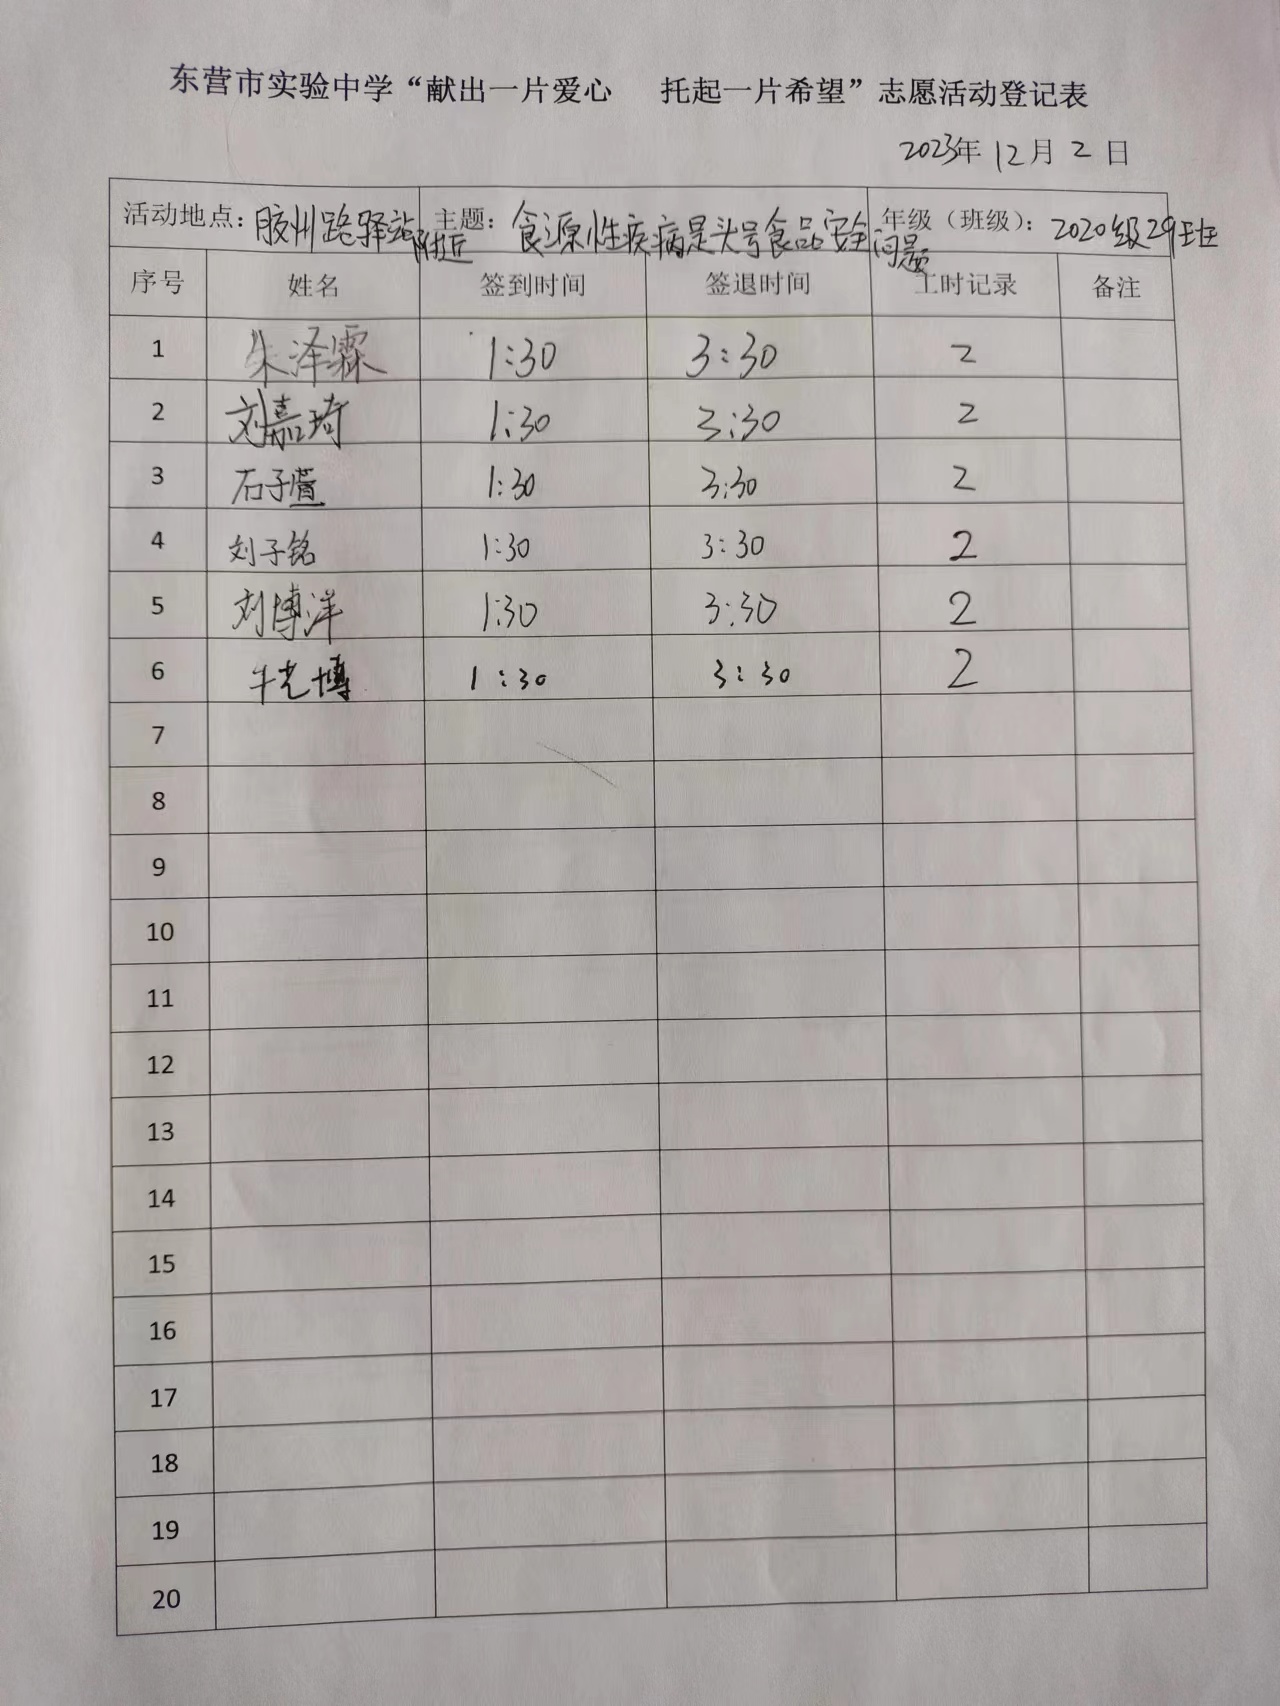 东营市实验中学“献出一片爱心 托起一片希望”志愿活动登记表
2023年 12月 2 日
活动地点：胶州路驿站附近 主题：食源性疾病是头号食品安全问题 年级（班级）：2020级29班
序号 姓名 签到时间 签退时间 工时记录 备注
1 朱泽霖 1:30 3:30 2
2 刘嘉琦 1:30 3:30 2
3 石子萱 1:30 3:30 2
4 刘子铭 1:30 3:30 2
5 刘博洋 1:30 3:30 2
6 牛光博 1:30 3:30 2
7
8
9
10
11
12
13
14
15
16
17
18
19
20